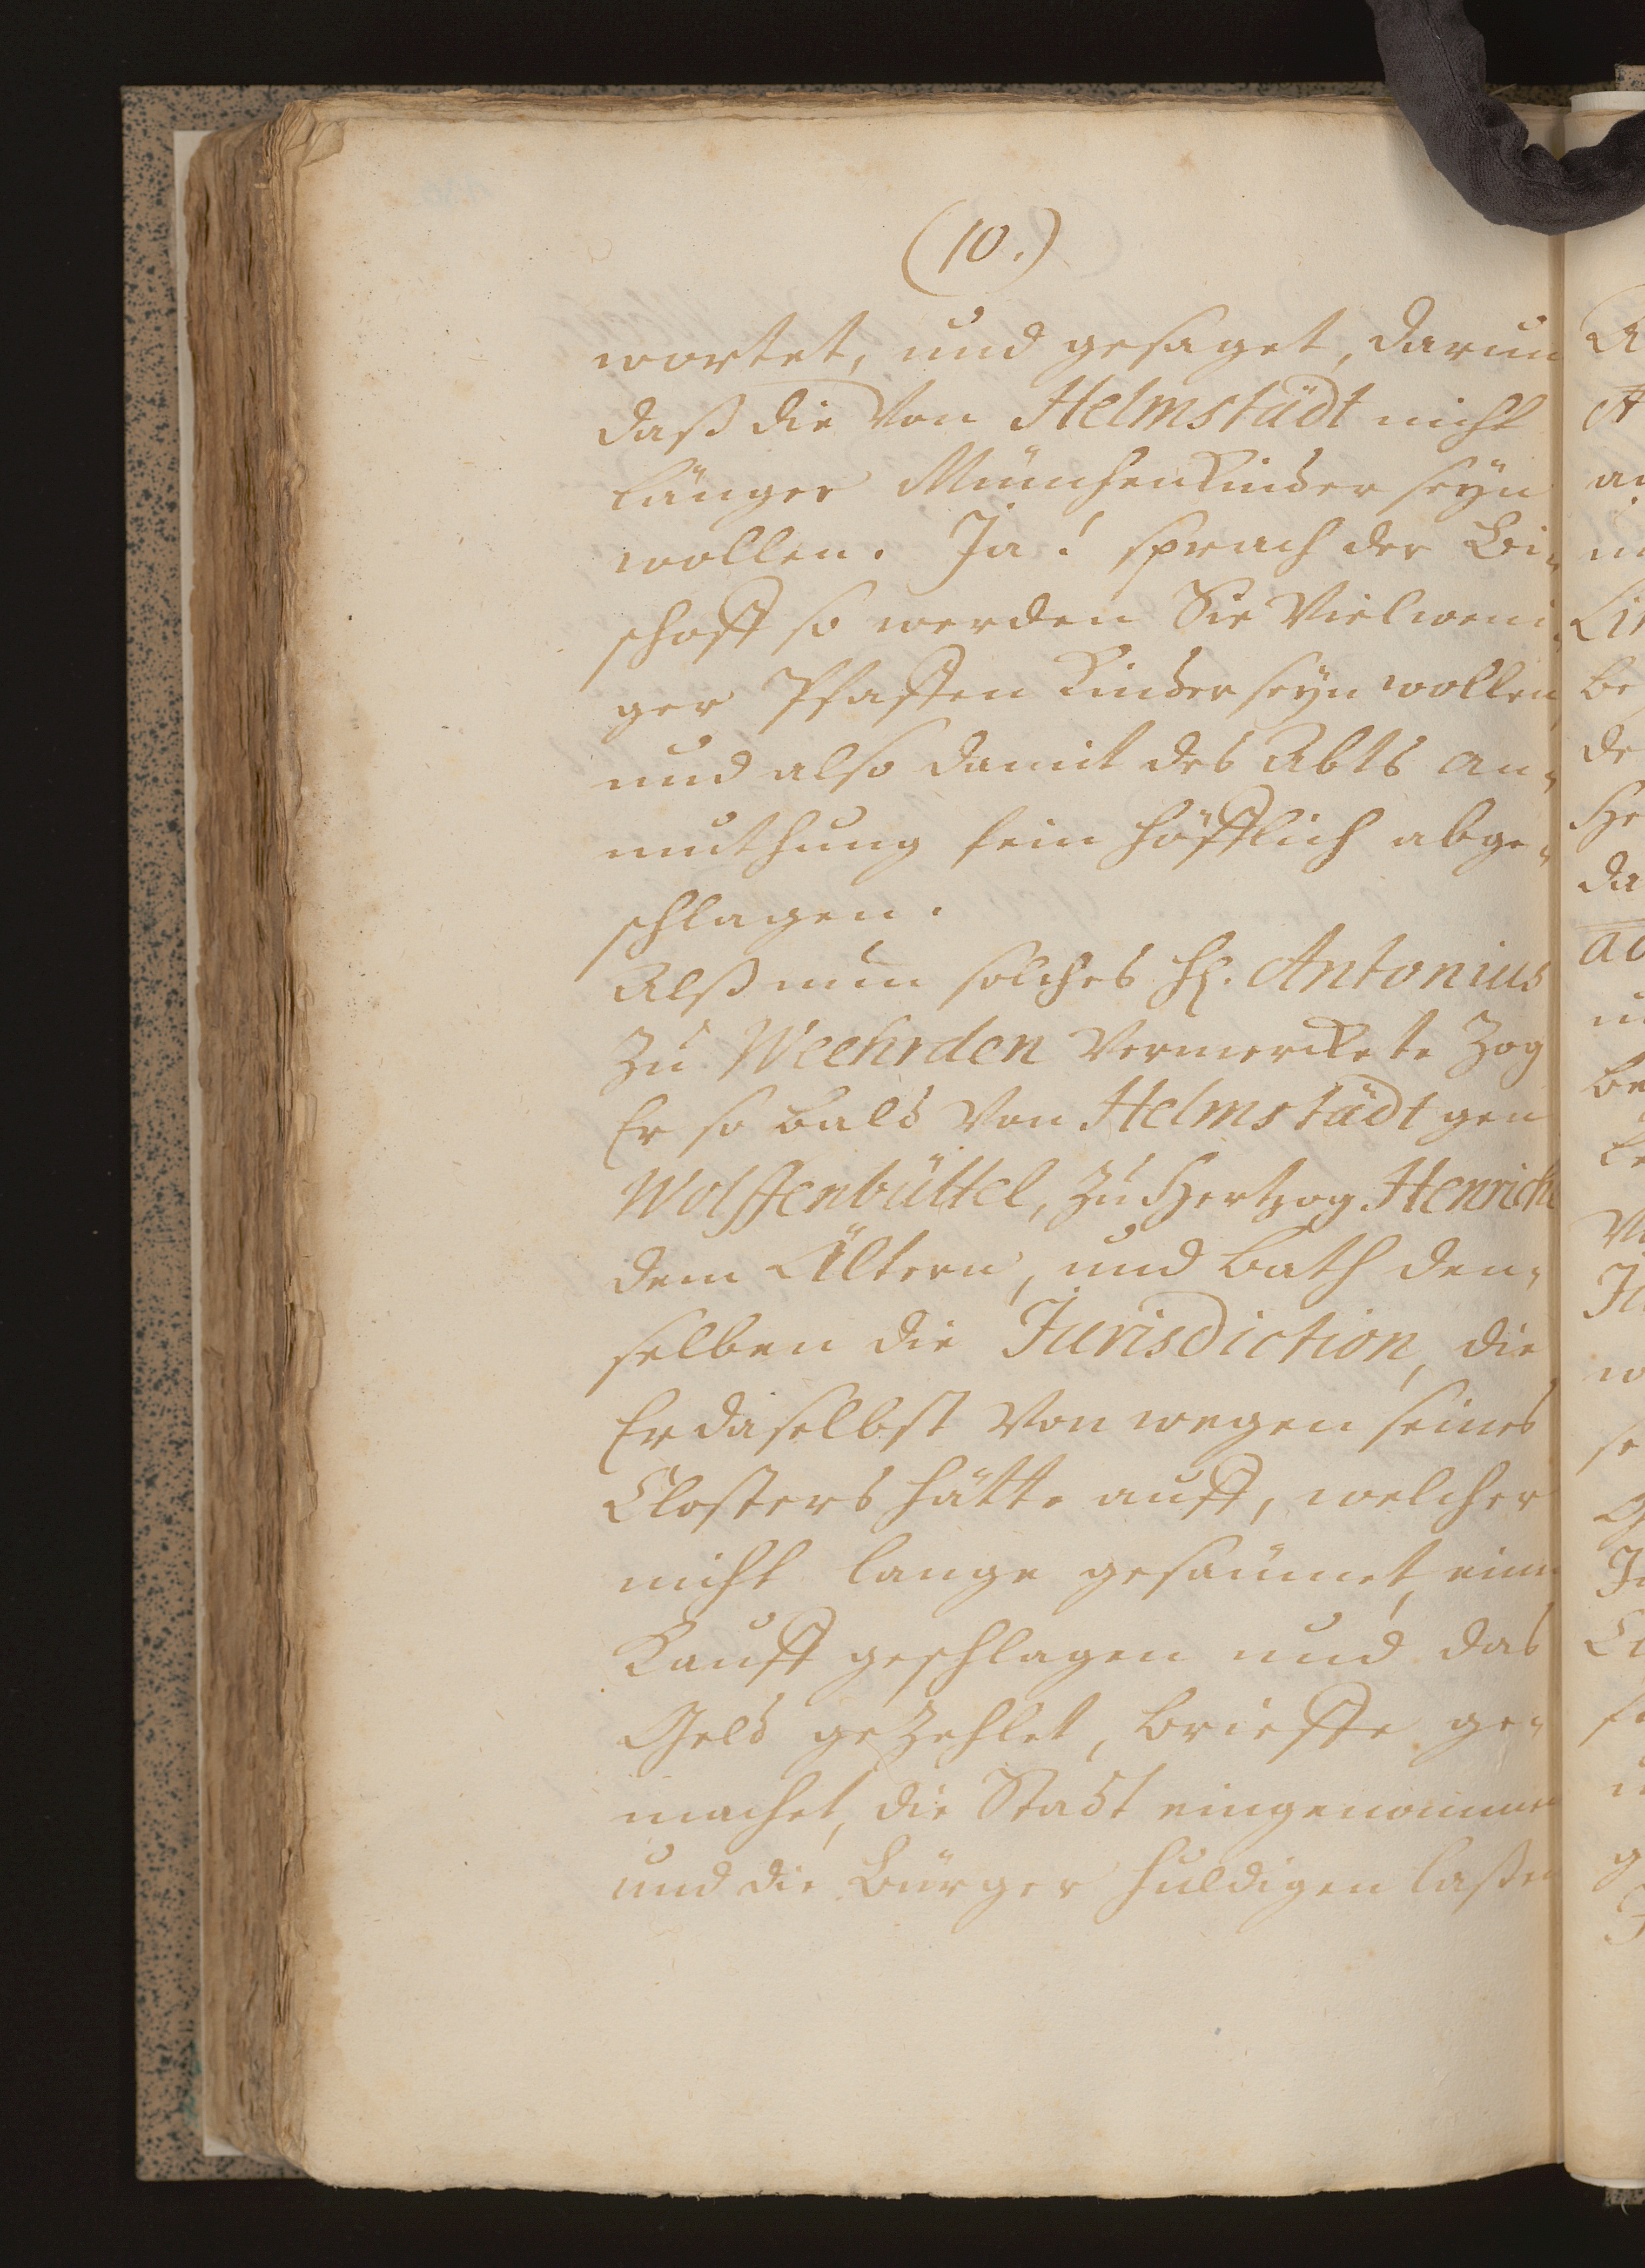 (10.)
wortet, und gesaget, darum
daß die von Helmstädt nicht
länger Münchenkinder seyn
wollen. Ja! sprach der Bi-
schoff so werden Sie vielweni-
ger Pfaffen Kinder seyn wollen,
und also damit des Abts an-
muthung fein höfflich abge-
schlagen.
Alß nun solches H. Antonius
zu Weehrden vermerckete zog
Er so bald von Helmstädt gen
Wolffenbüttel, zu Hertzog Henrich
dem Ältern, und bath den-
selben die Jurisdiction, die
Er daselbst von wegen seines
Closters hätte auff, welcher
nicht lange gesäumet, einen
Kauff geschlagen und das
Geld gezehlet, brieffe ge-
machet, die Stadt eingenommen
und die Bürger huldigen laßen